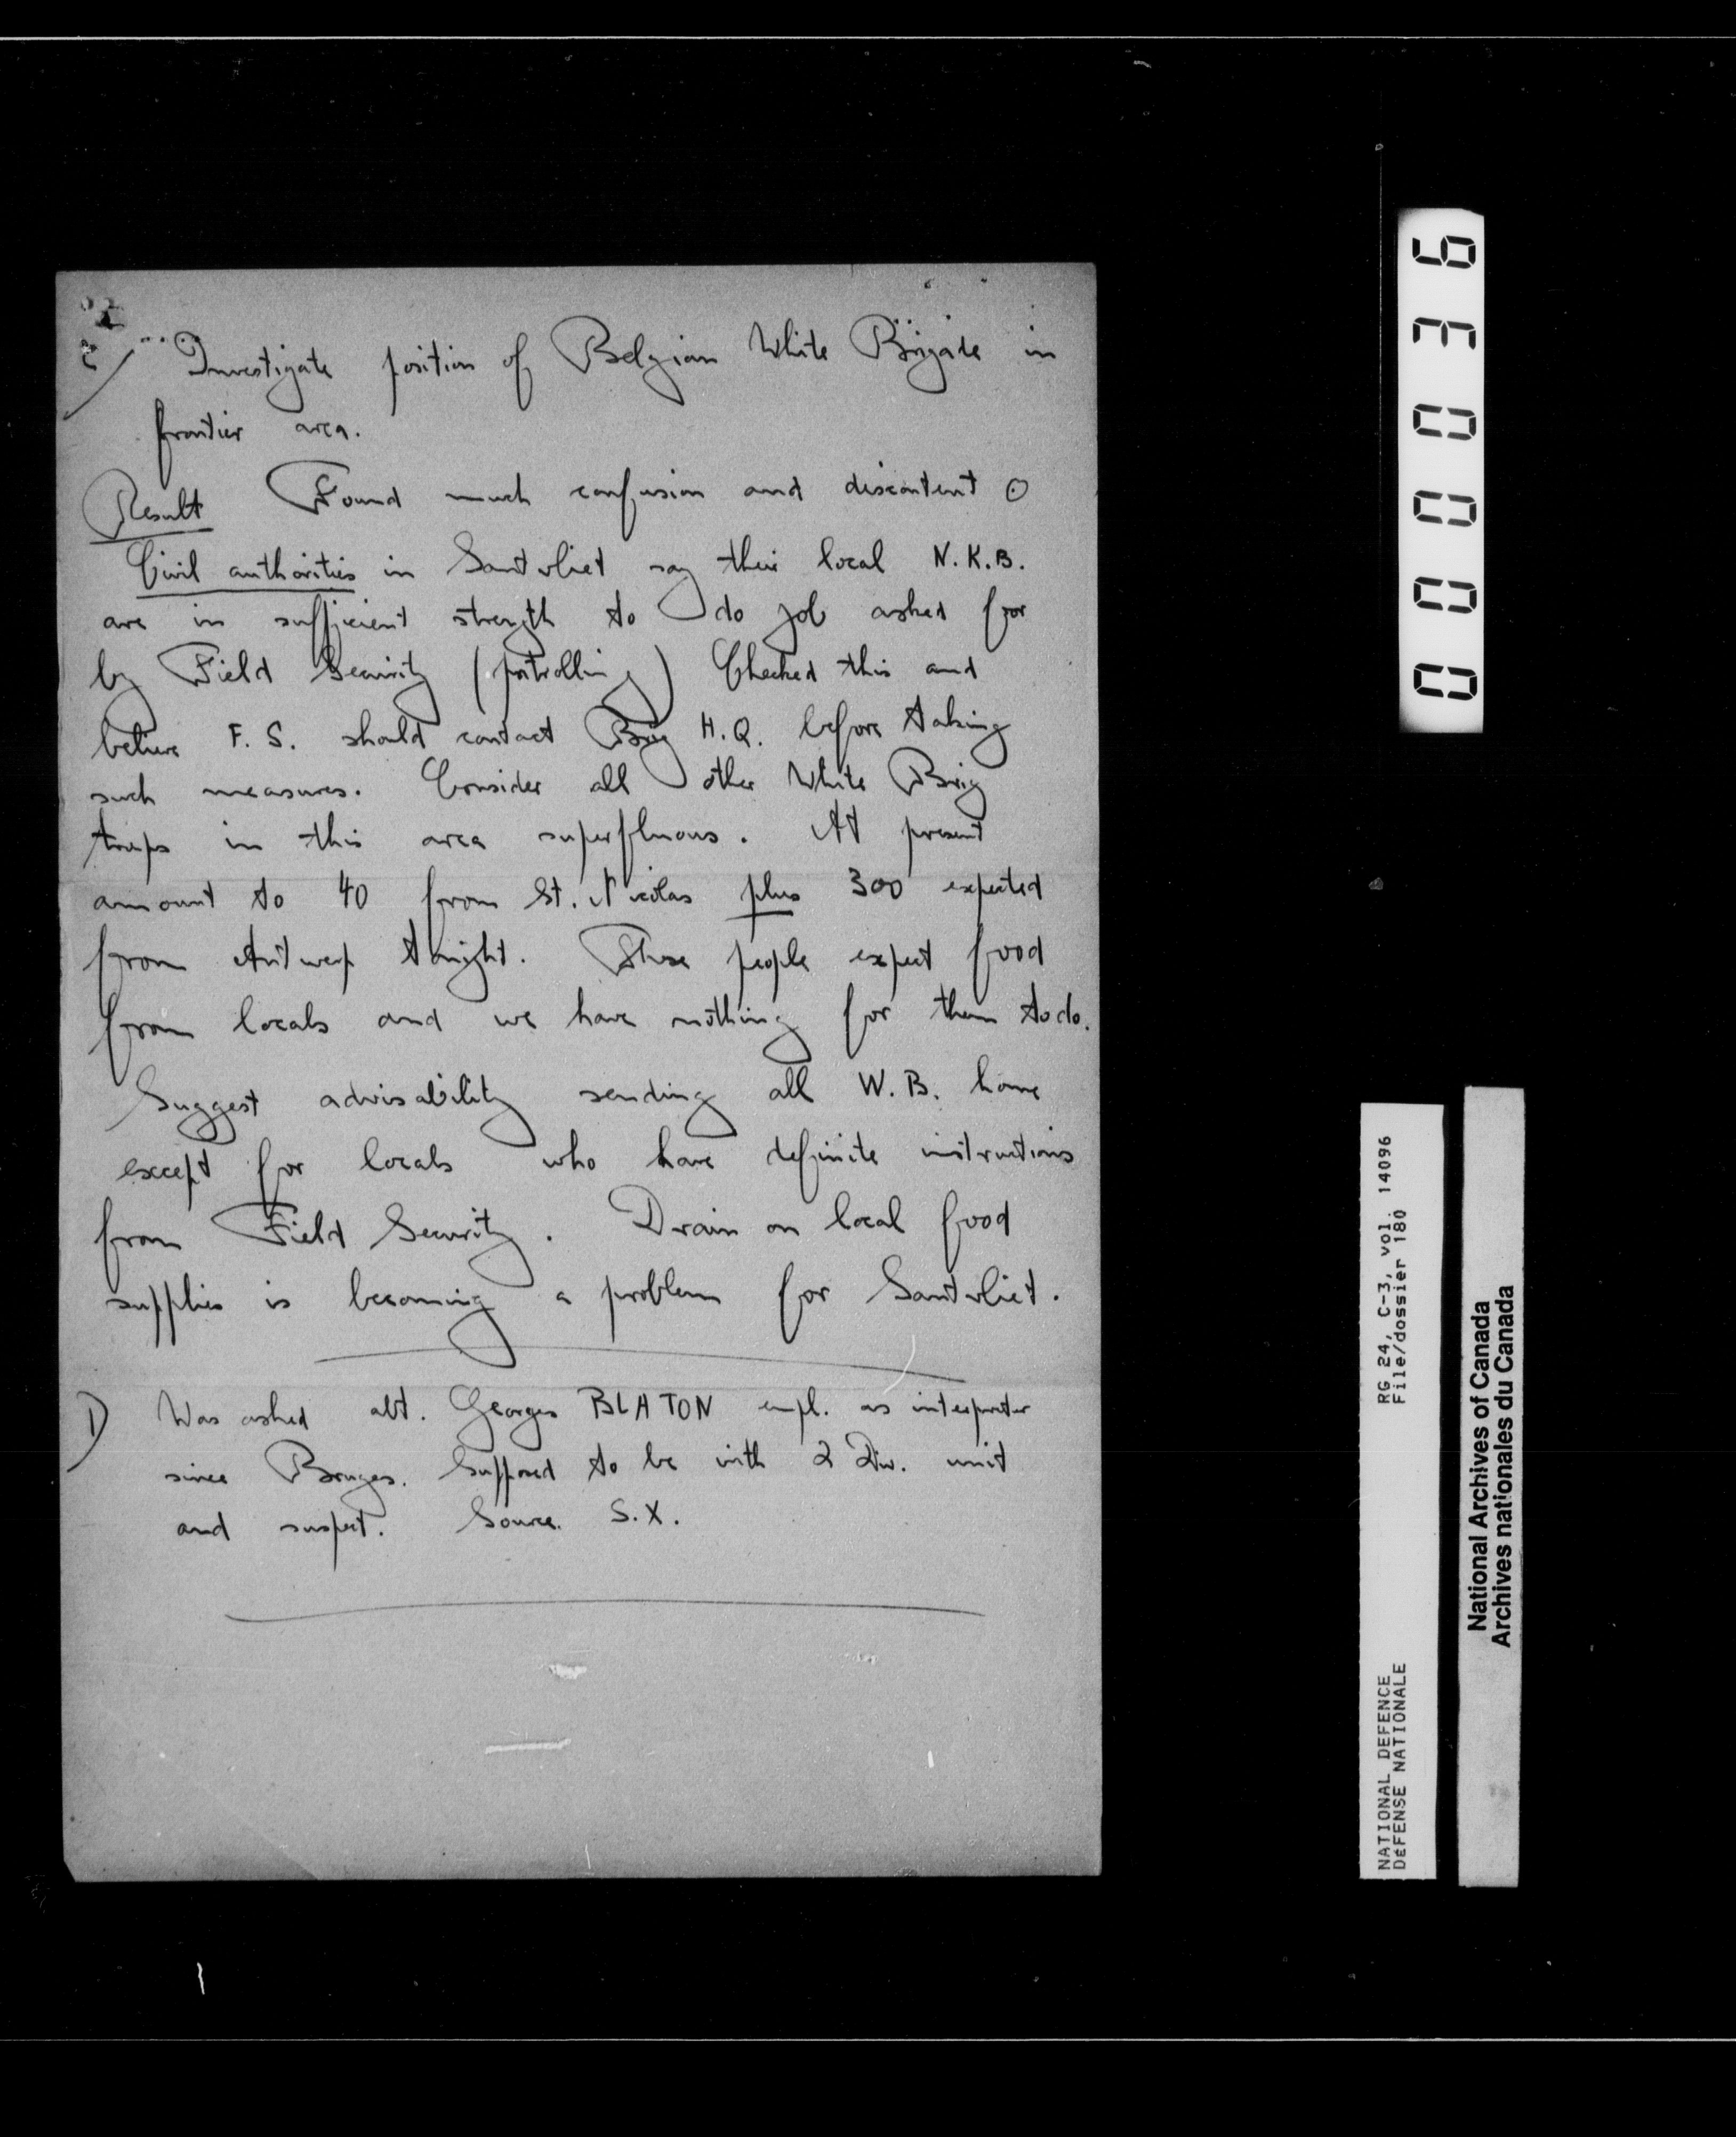 Investigate position of Belgian White Brigade in
frontier area.
Result Found much confusion and discontent ⊙
Civil authorities in Santvliet say their local N.K.B.
are in sufficient strength to do job asked for
by Field Security (patrolling) Checked this and
believe F.S. should contact Brig H.Q. before taking
such measures. Consider all other White Brig
troops in this area superfluous. At present
amount to 40 from St. Nicolas plus 300 expected
from Antwerp tonight. These people expect food
from locals and we have nothing for them to do.
Suggest advisability sending all W.B. home
except for locals who have definite instructions
from Field Security. Drain on local food
supplies is becoming a problem for Santvliet.
D) Was asked abt. Georges BLATON empl. as interpreter
since Bruges. Supposed to be with 2 Div. unit
and suspect. Source. S.X.
000036
RG 24, C-3, vol. 14096
File/dossier 180
NATIONAL DEFENCE
DÉFENSE NATIONALE
National Archives of Canada
Archives nationales du Canada